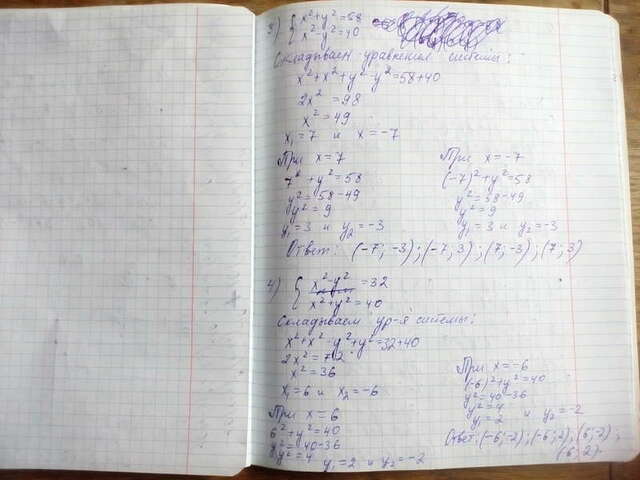 3) { x²+y²=58
x²-y²=40
Складываем уравнения системы:
x²+x²+y²-y²=58+40
2x²=98
x²=49
x₁=7 и x=-7
При x=7
7²+y²=58
y²=58-49
y²=9
y₁=3 и y₂=-3
При x=-7
(-7)²+y²=58
y²=58-49
y²=9
y₁=3 и y₂=-3
Ответ: (-7;-3);(-7;3);(7;-3);(7;3)
4) { x²-y²=32
x²+y²=40
Складываем ур-я системы:
x²+x²-y²+y²=32+40
2x²=72
x²=36
x₁=6 и x₂=-6
При x=6
6²+y²=40
y²=40-36
y²=4
y₁=2 и y₂=-2
При x=-6
(-6)²+y²=40
y²=40-36
y²=4
y₁=2 и y₂=-2
Ответ: (-6;-2);(-6;2);(6;-2);
(6;2).